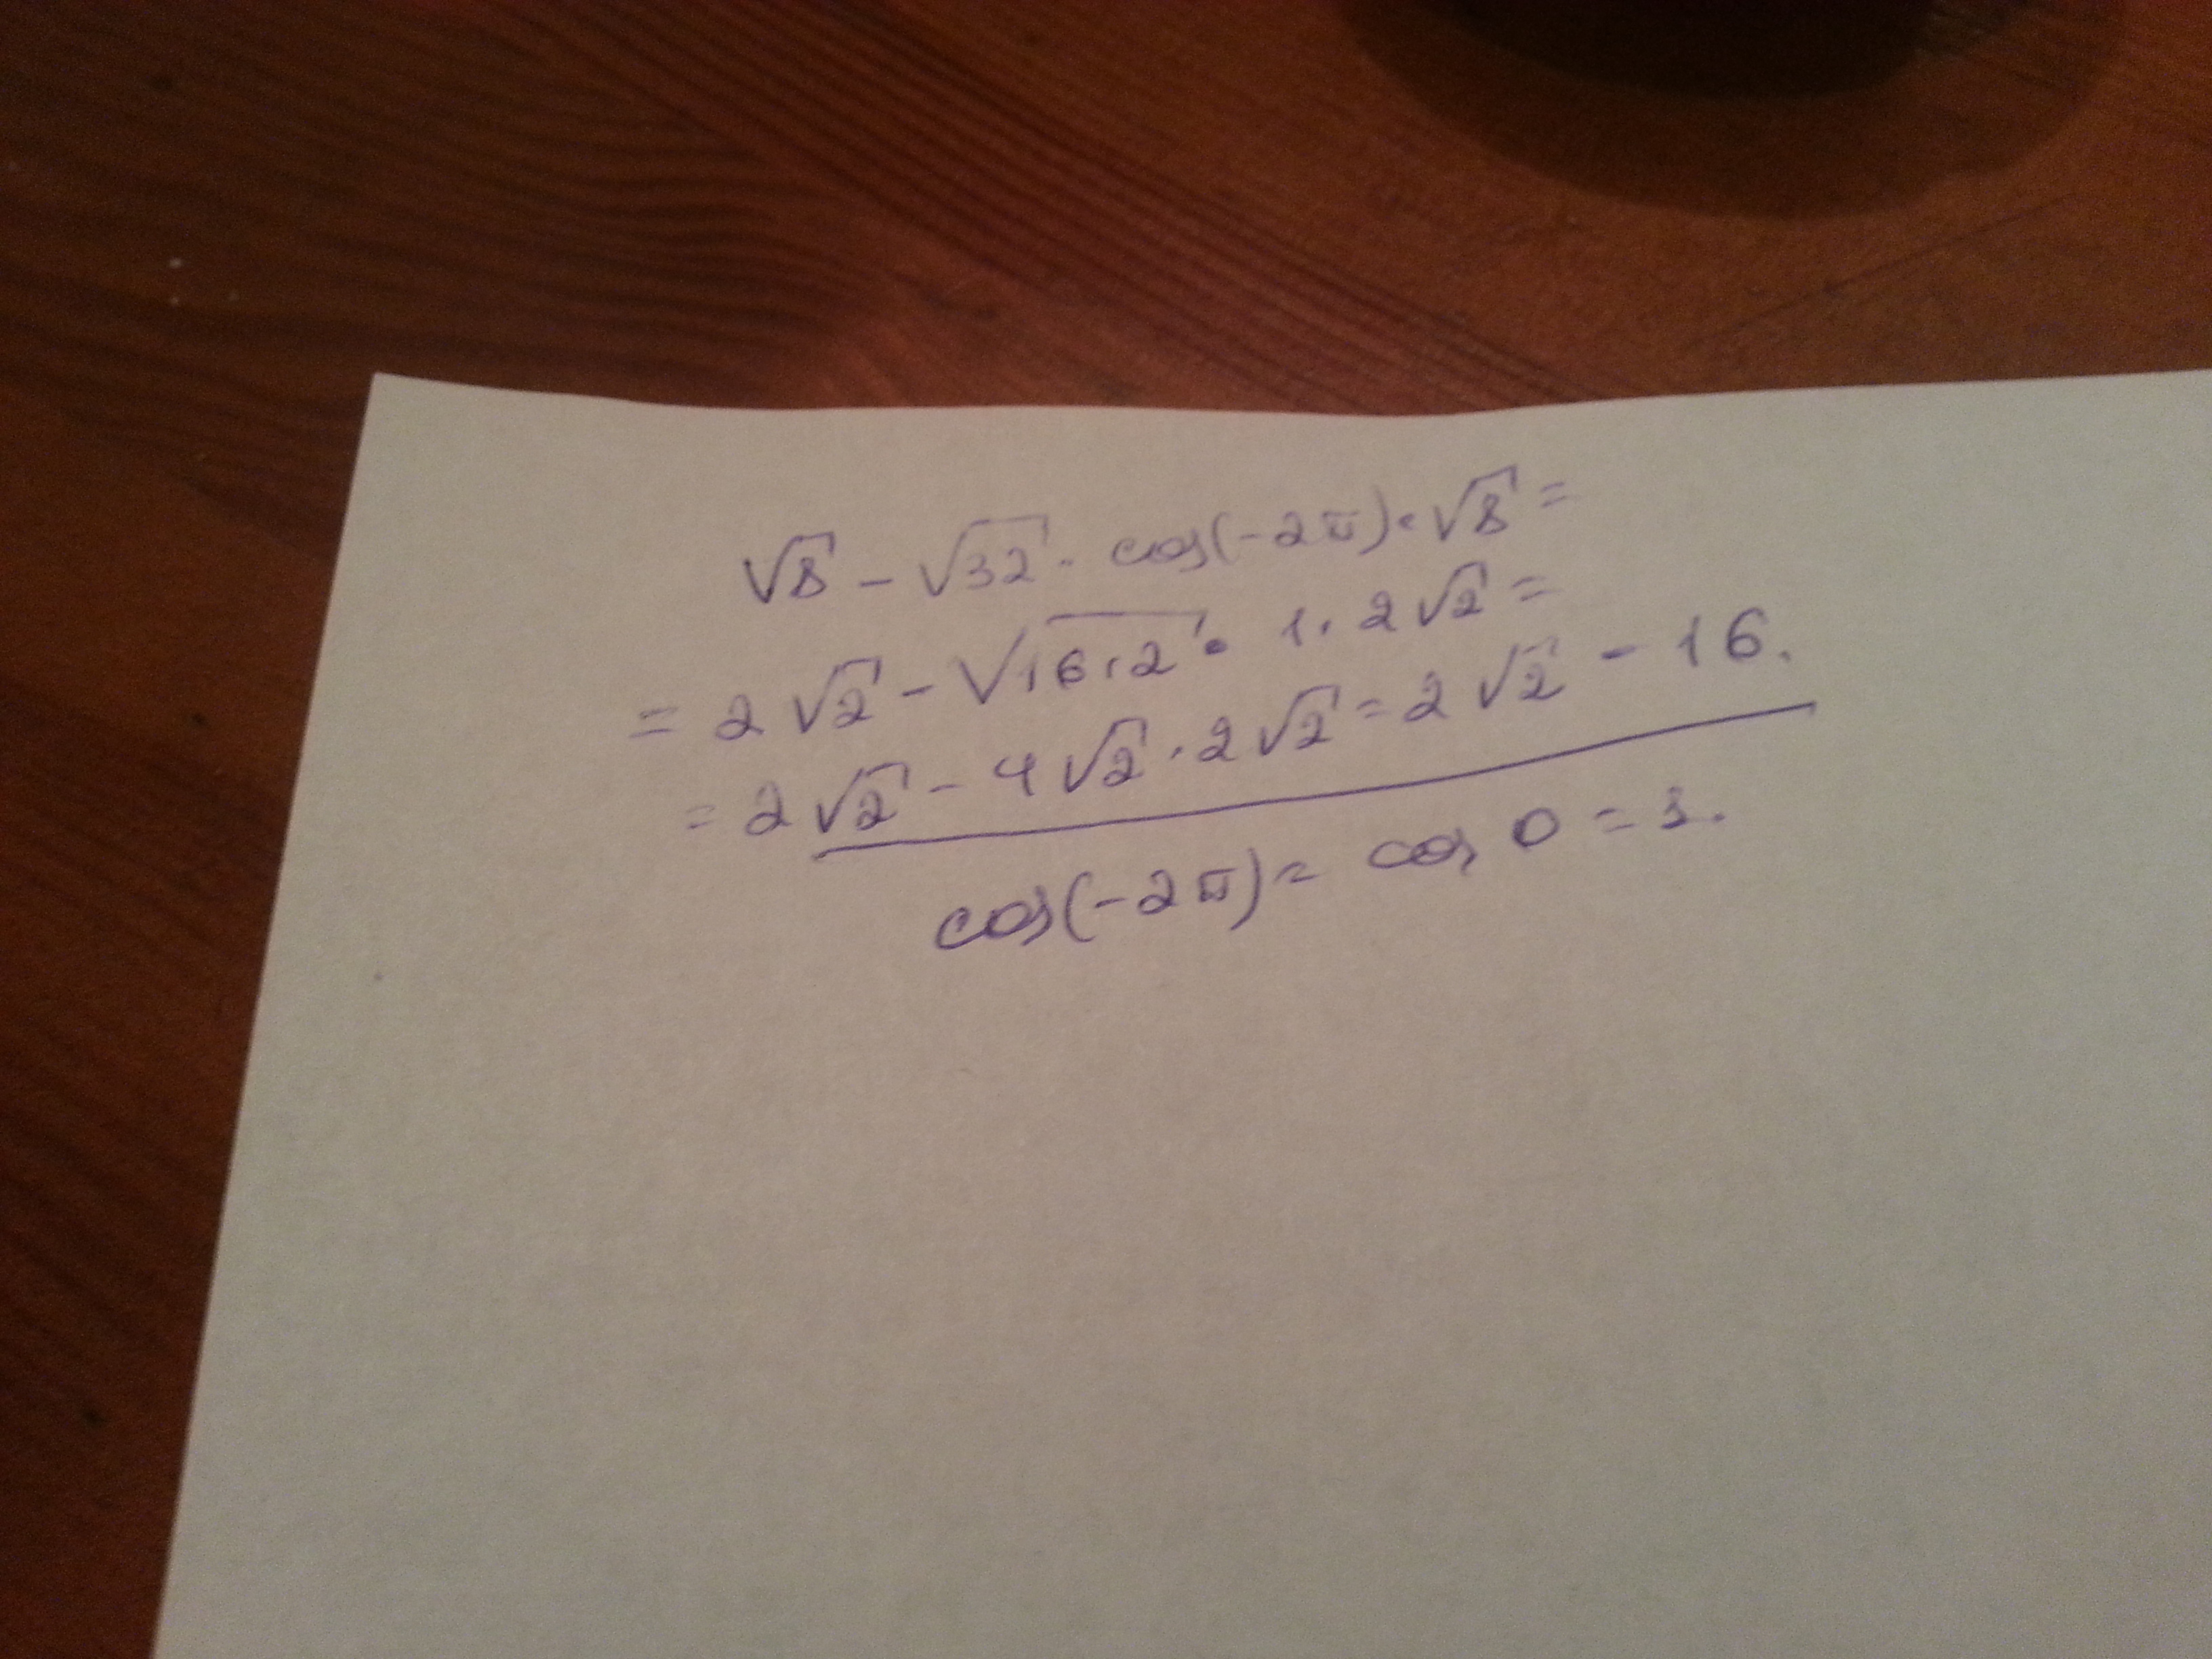 √8 - √32 · cos(-2π) · √8 =
= 2√2 - √16·2 · 1 · 2√2 =
= 2√2 - 4√2 · 2√2 = 2√2 - 16.
cos(-2π) = cos 0 = 1.